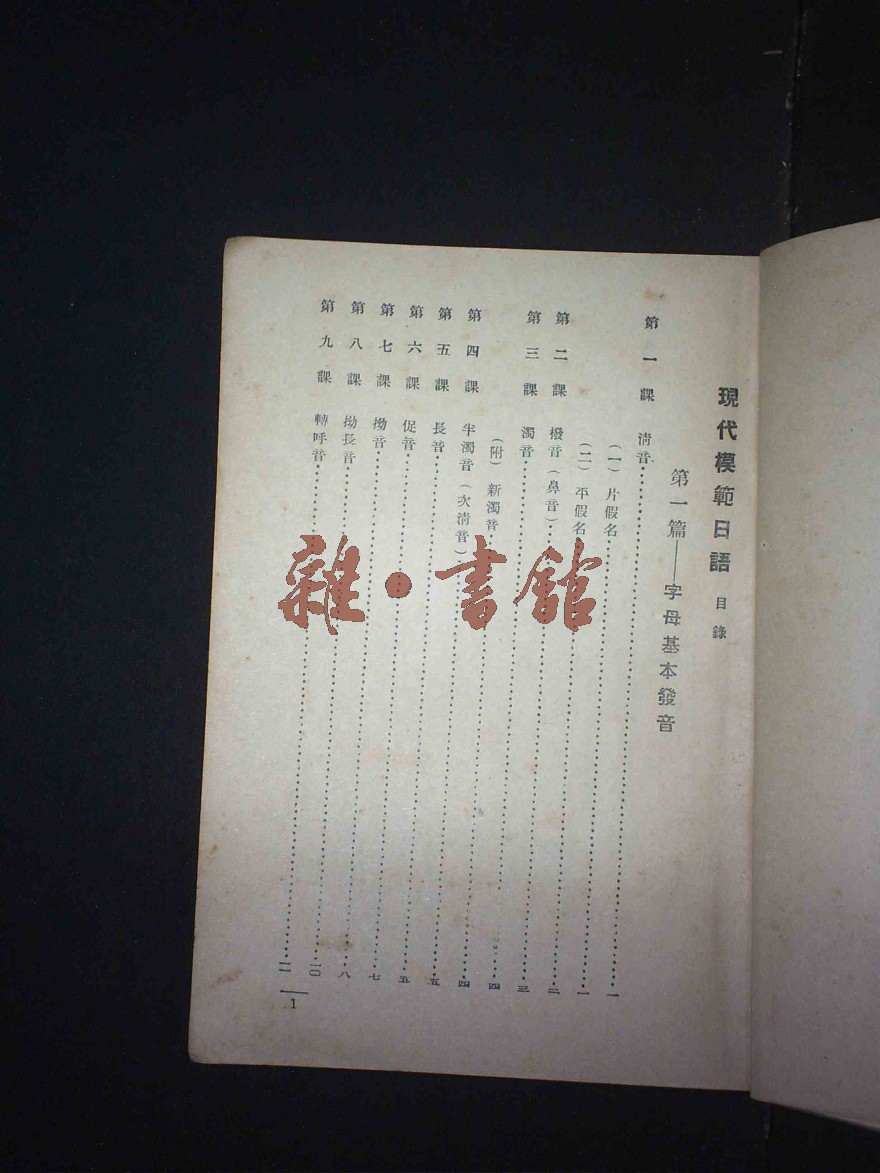 現代模範日語 目錄
第一篇——字母基本發音
第一課 清音……一
(一)片假名……一
(二)平假名……二
第二課 撥音(鼻音)……三
第三課 濁音……四
(附)新濁音……四
第四課 半濁音(次清音)……五
第五課 長音……五
第六課 促音……七
第七課 拗音……八
第八課 拗長音……一〇
第九課 轉呼音……一一
1
雜·書館